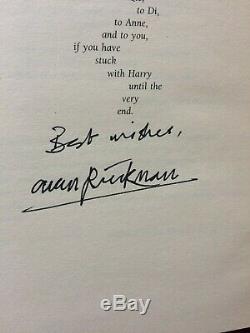 to Di,
to Anne,
and to you,
if you have
stuck
with Harry
until the
very
end.
Best wishes,
Alan Rickman